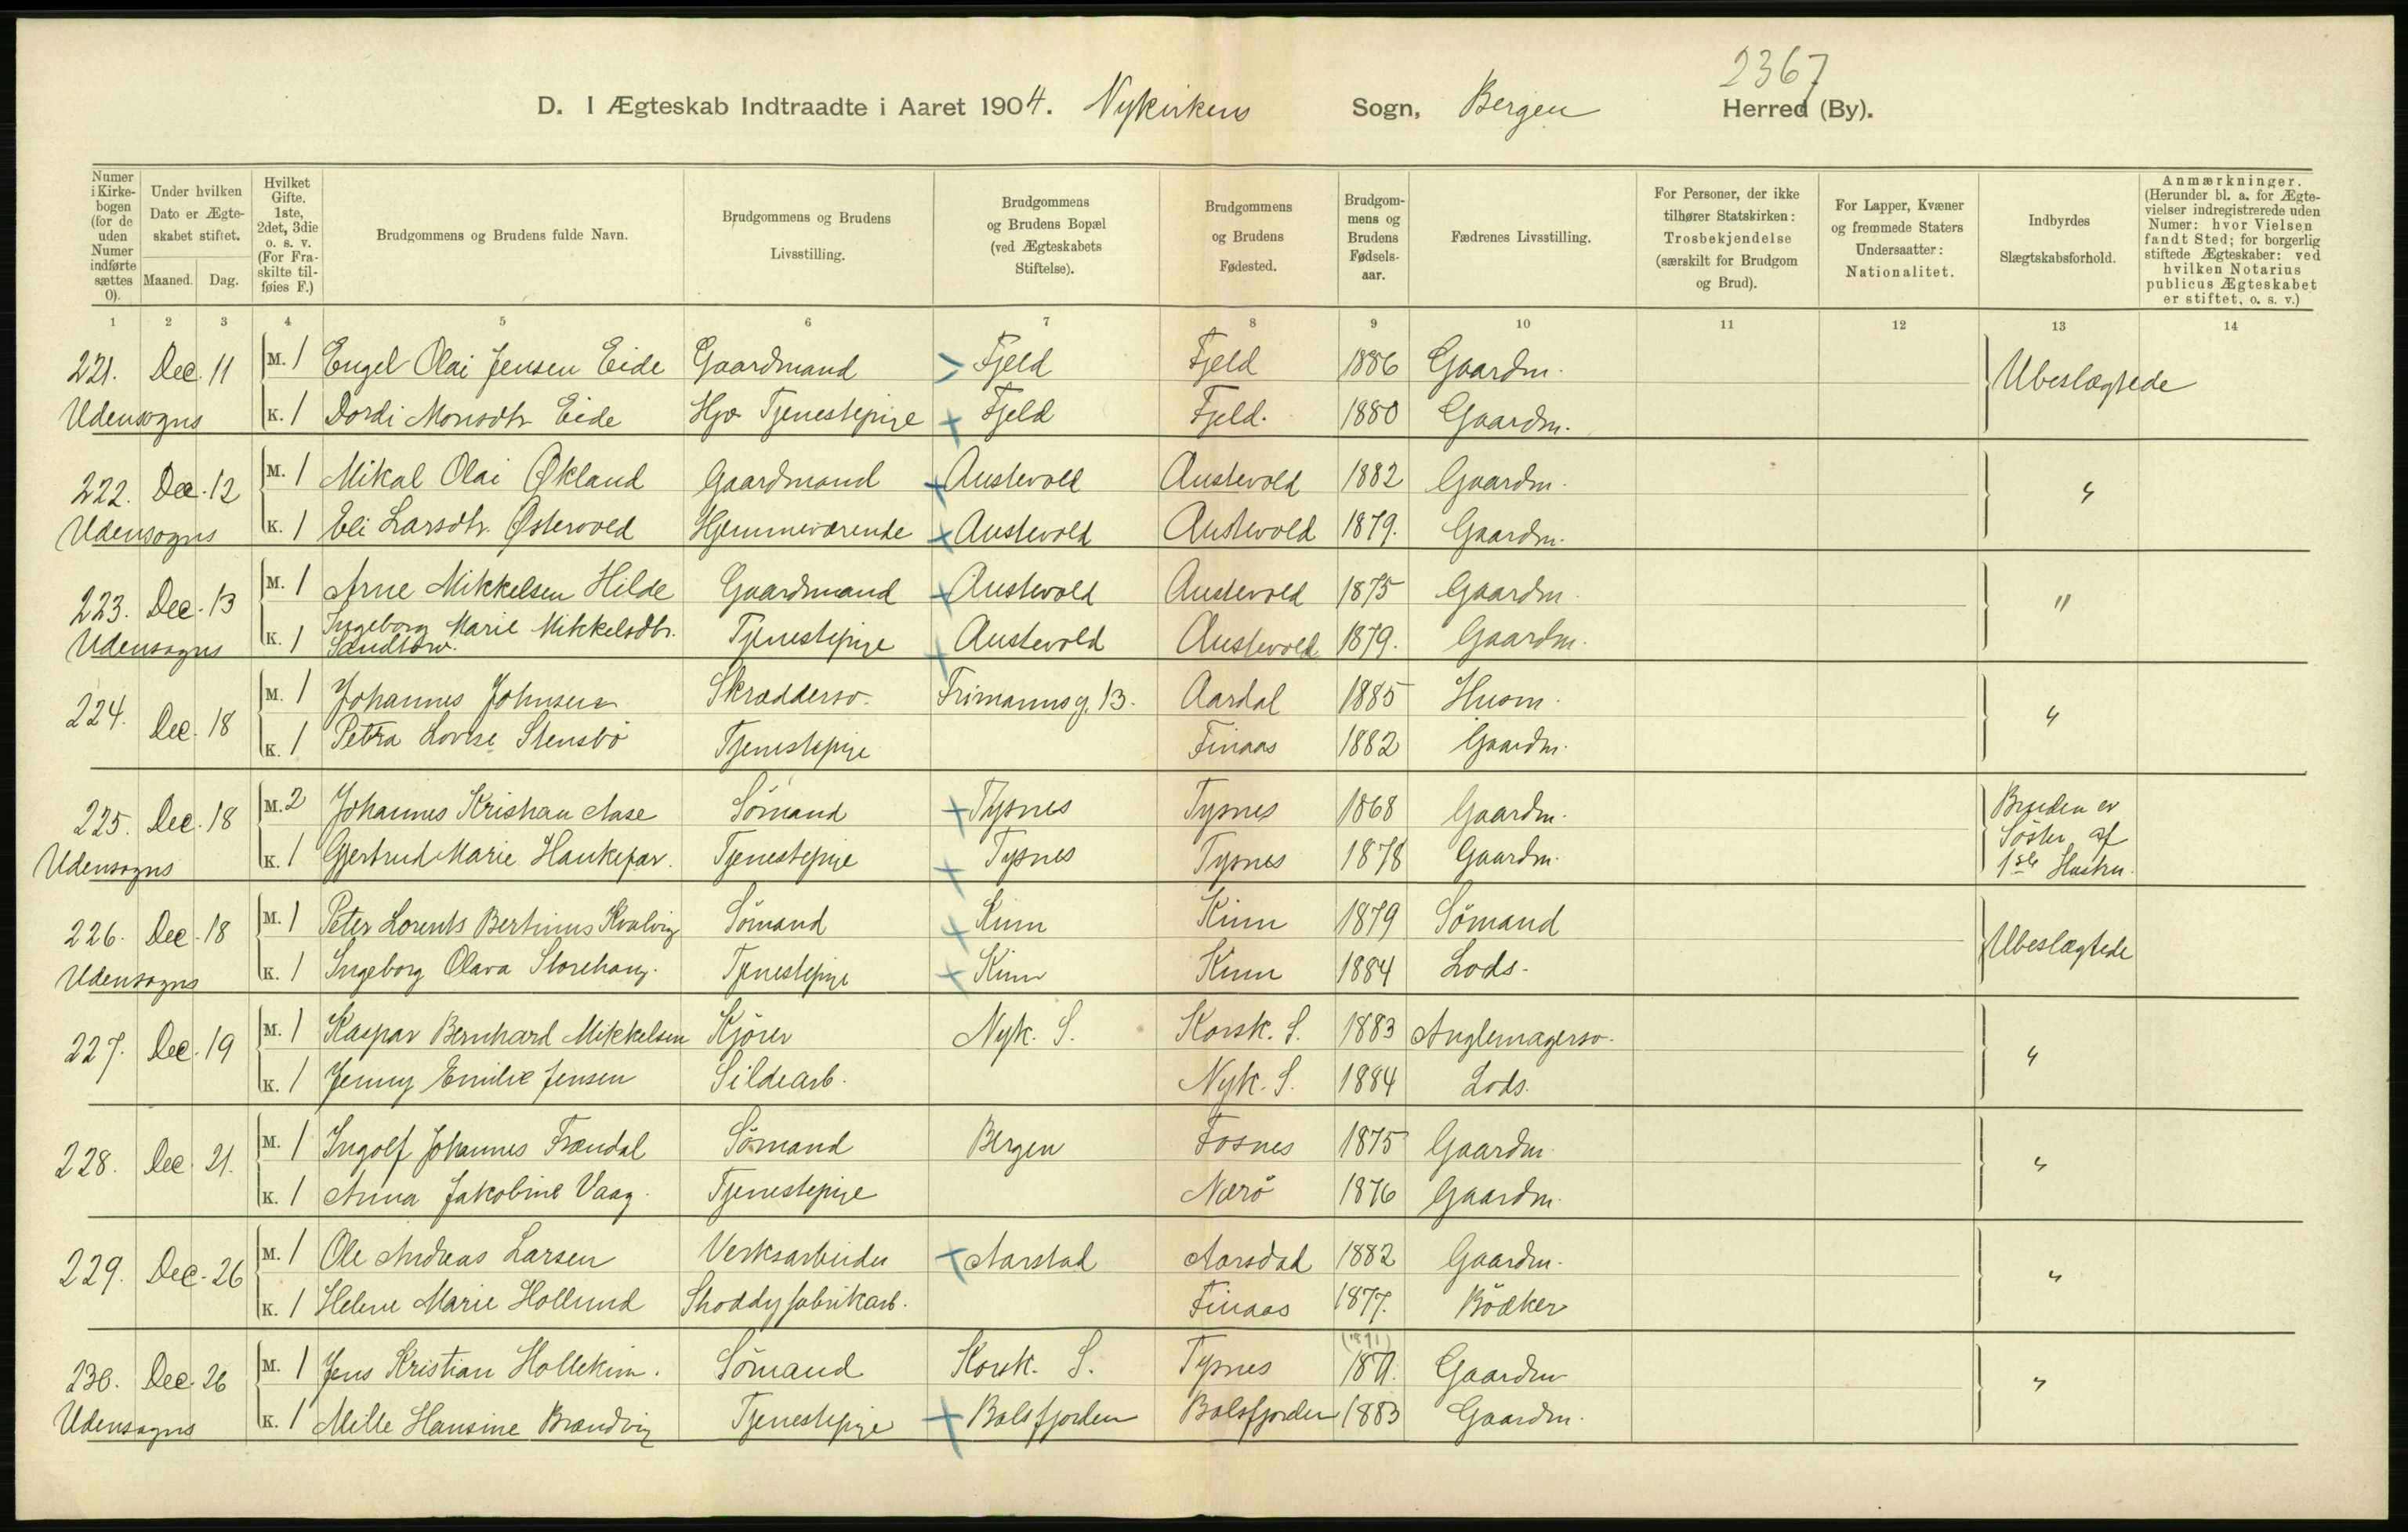 2367
D. I Ægteskab Indtraadte i Aaret 1904. Nykirkens Sogn, Bergen Herred (By).
Numer i Kirkebogen (for de uden Numer indførte sættes 0).
Under hvilken Dato er Ægteskabet stiftet.
Maaned. Dag.
Hvilket Gifte. 1ste, 2det, 3die o. s. v. (For Fraskilte tilføies F.)
Brudgommens og Brudens fulde Navn.
Brudgommens og Brudens Livsstilling.
Brudgommens og Brudens Bopæl (ved Ægteskabets Stiftelse).
Brudgommens og Brudens Fødested.
Brudgommens og Brudens Fødselsaar.
Fædrenes Livsstilling.
For Personer, der ikke tilhører Statskirken: Trosbekjendelse (særskilt for Brudgom og Brud).
For Lapper, Kvæner og fremmede Staters Undersaatter: Nationalitet.
Indbyrdes Slægtskabsforhold.
Anmærkninger. (Herunder bl. a. for Ægtevielser indregistrerede uden Numer: hvor Vielsen fandt Sted; for borgerlig stiftede Ægteskaber: ved hvilken Notarius publicus Ægteskabet er stiftet, o. s. v.)
1 2 3 4 5 6 7 8 9 10 11 12 13 14
221. Dec. 11 M. 1 Engel Olai Jensen Eide Gaardmand Fjeld Fjeld 1886 Gaardm. Ubeslægtede
Udensogns K. 1 Dordi Monsdtr Eide Hjv Tjenestepige Fjeld Fjeld. 1880 Gaardm.
222. Dec. 12 M. 1 Mikal Olai Økland Gaardmand Austevold Austevold 1882 Gaardm. "
Udensogns K. 1 Eli Larsdtr. Østervold Hjemmeværende Austevold Austevold 1879. Gaardm.
223. Dec. 13 M. 1 Arne Mikkelsen Hilde Gaardmand Austevold Austevold 1875 Gaardm. "
Udensogns K. 1 Ingeborg Marie Mikkelsdtr. Tjenestepige Austevold Austevold 1879. Gaardm.
224. Dec. 18 M. 1 Johannes Johnsen Skræddersv. Frimannsg. 13. Aardal 1885 Husm. "
K. 1 Petra Lovise Stensbö Tjenestepige Finaas 1882 Gaardm.
225. Dec. 18 M. 2 Johannes Kristian Aase Sömand Tysnes Tysnes 1868 Gaardm. Bruden er
Söster af
Udensogns K. 1 Gjertrud Marie Tjenestepige Tysnes Tysnes 1878 Gaardm. 1ste Hustru.
226. Dec. 18 M. 1 Peter Lorents Bertinius Kvalvig Sömand Kinn Kinn 1879 Sömand Ubeslægtede
Udensogns K. 1 Ingeborg Olava Storehaug. Tjenestepige Kinn Kinn 1884 Lods.
227. Dec. 19 M. 1 Kaspar Bernhard Mikkelsen Kjörer Nyk. S. Korsk. S. 1883 Anglemagersv. "
K. 1 Jenny Emilie Jensen Sildearb. Nyk. S. 1884 Lods.
228. Dec. 21. M. 1 Ingolf Johannes Frændal Sömand Bergen Fosnes 1875 Gaardm. "
K. 1 Anna Jakobine Vaag. Tjenestepige Nærö 1876 Gaardm.
229. Dec. 26 M. 1 Ole Andreas Larsen Verksarbeider Aarstad Aarsdad 1882 Gaardm. "
K. 1 Helene Marie Hollund Shoddyfabrikarb. Finaas 1877. Bödker
(1871)
230. Dec. 26 M. 1 Jens Kristian Hollekim. Sömand Korsk. S. Tysnes 1871. Gaardm "
Udensogns K. 1 Mille Hansine Brændvig Tjenestepige Balsfjorden Balsfjorden 1883 Gaardm.